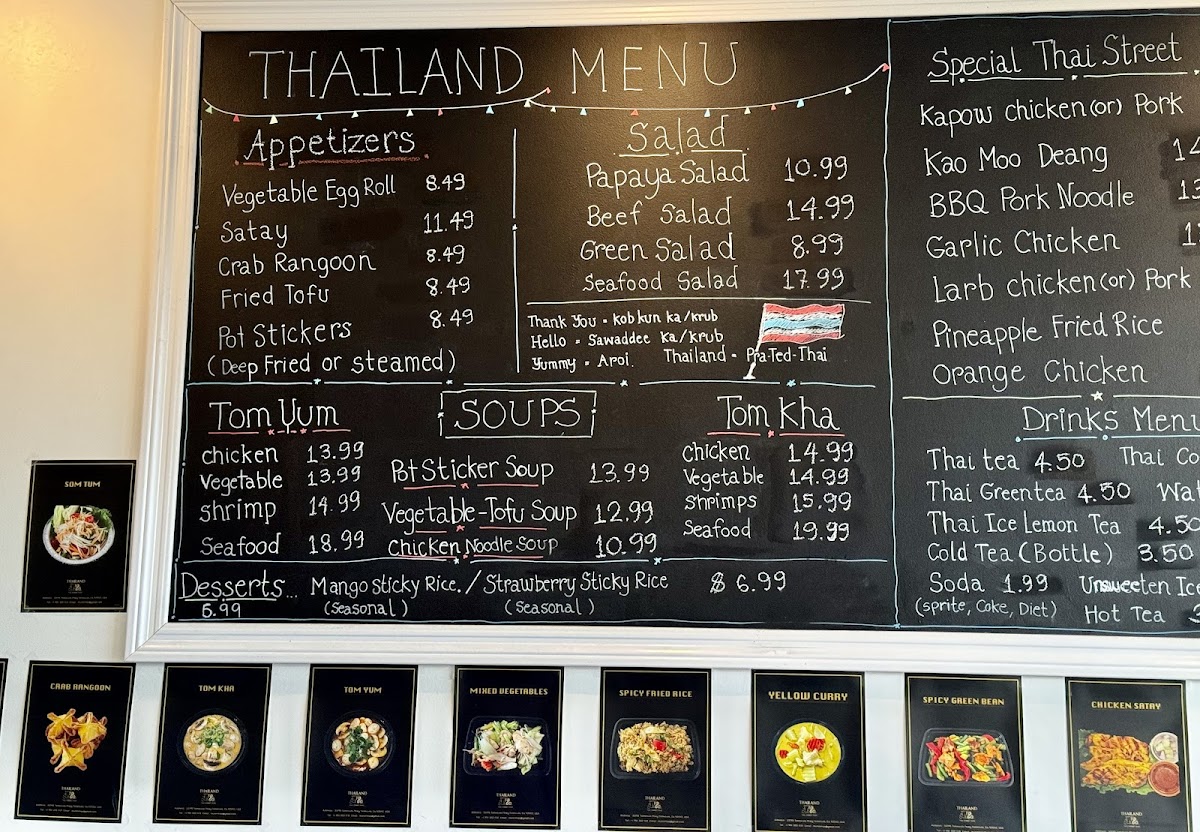 THAILAND MENU
Appetizers
Vegetable Egg Roll 8.49
Satay 11.49
Crab Rangoon 8.49
Fried Tofu 8.49
Pot Stickers 8.49
(Deep Fried or steamed)
Salad
Papaya Salad 10.99
Beef Salad 14.99
Green Salad 8.99
Seafood Salad 17.99
Thank You = kob kun ka/krub
Hello = Sawaddee ka/krub
Yummy = Aroi. Thailand = Pra-Ted-Thai
Tom Yum
chicken 13.99
Vegetable 13.99
shrimp 14.99
Seafood 18.99
SOUPS
Pot Sticker Soup 13.99
Vegetable-Tofu Soup 12.99
Chicken Noodle Soup 10.99
Tom Kha
chicken 14.99
Vegetable 14.99
shrimps 15.99
Seafood 19.99
Desserts... Mango Sticky Rice. / Strawberry Sticky Rice $ 6.99
5.99 (seasonal) (seasonal)
Special Thai Street
Kapow chicken (or) Pork
Kao Moo Deang 14
BBQ Pork Noodle 13
Garlic Chicken
Larb chicken (or) Pork
Pineapple Fried Rice
Orange Chicken
Drinks Menu
Thai tea 4.50 Thai Co
Thai Greentea 4.50 Wat
Thai Ice Lemon Tea 4.50
Cold Tea (Bottle) 3.50
Soda 1.99 Unsweeten Ice
(sprite, Coke, Diet) Hot Tea
SOM TUM
THAILAND
CRAB RANGOON
THAILAND
TOM KHA
THAILAND
TOM YUM
THAILAND
MIXED VEGETABLES
THAILAND
SPICY FRIED RICE
THAILAND
YELLOW CURRY
THAILAND
SPICY GREEN BEAN
THAILAND
CHICKEN SATAY
THAILAND